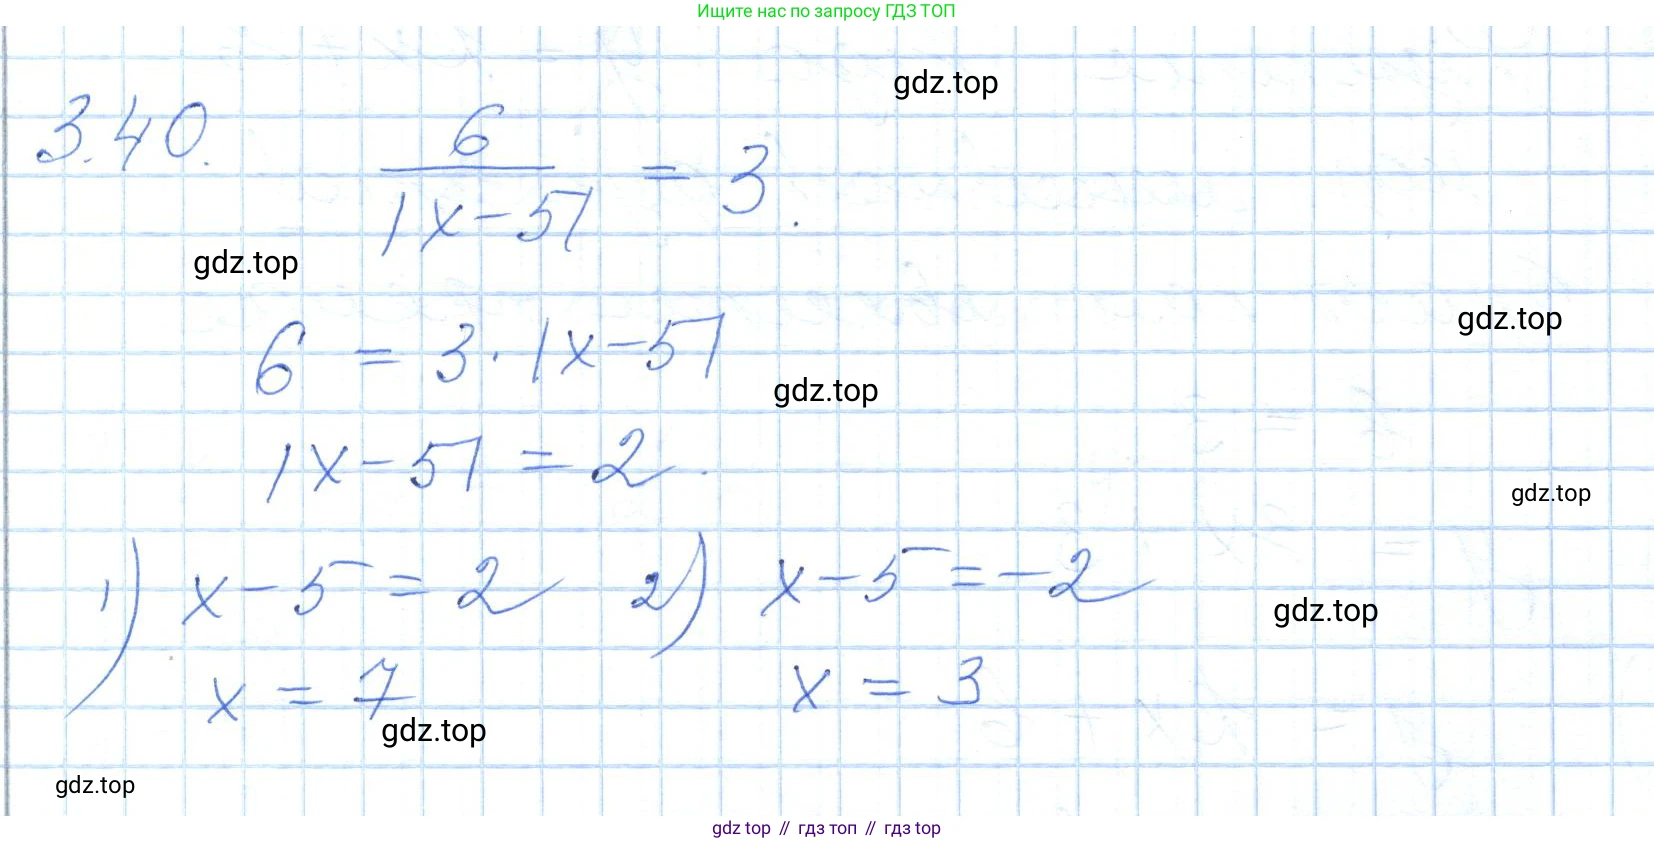 Ищите нас по запросу ГДЗ ТОП
gdz.top
3.40. 6/|x-5| = 3.
gdz.top
gdz.top
6 = 3·|x-5|
gdz.top
|x-5| = 2.
gdz.top
1) x-5=2 2) x-5=-2
gdz.top
x = 7 x = 3
gdz.top
gdz.top
gdz top // гдз топ // gdz top